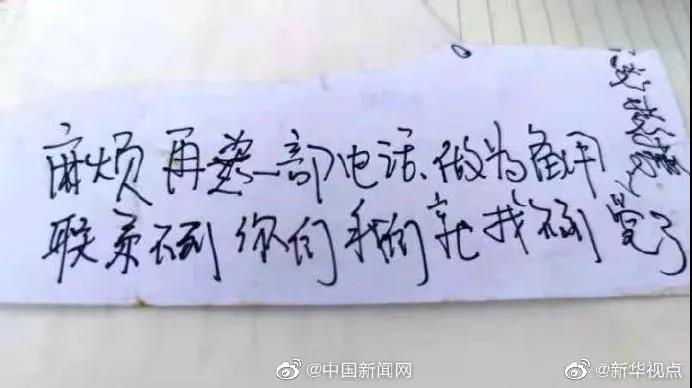 麻烦再一部电话.做为备用
联系不到你们我们就找不到了
@中国新闻网
@新华视点